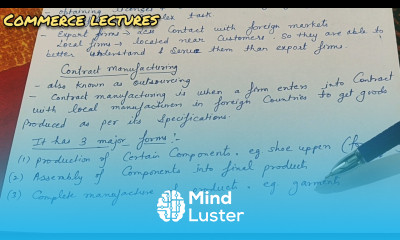 COMMERCE LECTURES
obtaining licenses
task.
- Export firms → less contact with foreign markets
Local firms → located near Customers. So they are able to
better understand & serve them than export firms.
Contract Manufacturing
- also known as outsourcing
- Contract manufacturing is when a firm enters into Contract
with local manufacturers in foreign Countries to get goods
produced as per its specifications.
It has 3 major forms :-
(1) production of Certain Components. eg. shoe uppers
(2) Assembly of Components into final products
(3) Complete manufacture of products. eg garments
Mind
Luster